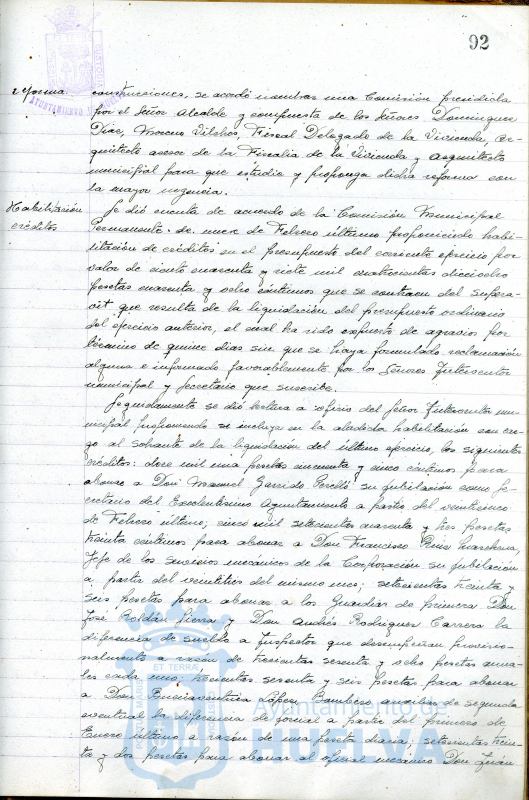 92
reforma. construcciones, se acordó nombrar una Comisión presidida
por el Señor Alcalde y compuesta de los Señores Dominguez
Diaz, Moreno Vilches Fiscal Delegado de la Vivienda, Ar-
quitecto asesor de la Fiscalía de la Vivienda y Arquitecto
municipal para que estudie y proponga dicha reforma con
la mayor urgencia.
Habilitación Se dió cuenta de acuerdo de la Comisión Municipal
créditos Permanente de nueve de Febrero último proponiendo habi-
litación de créditos en el presupuesto del corriente ejercicio por
valor de ciento cuarenta y siete mil cuatrocientas dieciocho
pesetas cuarenta y ocho céntimos que se contraen del superá-
vit que resulta de la liquidación del presupuesto ordinario
del ejercicio anterior, el cual ha sido expuesto de agravios por
término de quince días sin que se haya formulado reclamación
alguna e informado favorablemente por los Señores Interventor
municipal y Secretario que suscribe.
Seguidamente se dió lectura a oficio del Señor Interventor mu-
nicipal proponiendo se incluya en la aludida habilitación con car-
go al sobrante de la liquidación del último ejercicio, los siguientes
créditos: doce mil una pesetas cincuenta y cinco céntimos para
abonar a Don Manuel Garrido Perelló su jubilación como Se-
cretario del Excelentísimo Ayuntamiento a partir del veinticinco
de Febrero último; cinco mil setecientas cuarenta y tres pesetas
treinta céntimos para abonar a Don Francisco
Jefe de los servicios mecánicos de la Corporación su jubilación
a partir del veintitres del mismo mes; setecientas treinta y
seis pesetas para abonar a los Guardias de primera Don
José Roldán Sierra y Don Andrés Rodriguez Carrera la
diferencia de sueldo a Inspector que desempeñan provisio-
nalmente a razón de trescientas sesenta y ocho pesetas anua-
les cada uno; trescientas sesenta y seis pesetas para abonar
a Don Buenaventura López Bombero auxiliar de segunda
eventual la diferencia de jornal a partir del primero de
Enero último a razón de una peseta diaria; setecientas trein-
ta y dos pesetas para abonar al oficial mecánico Don Juan
ET TERRA
Ayuntamiento de
HUELVA